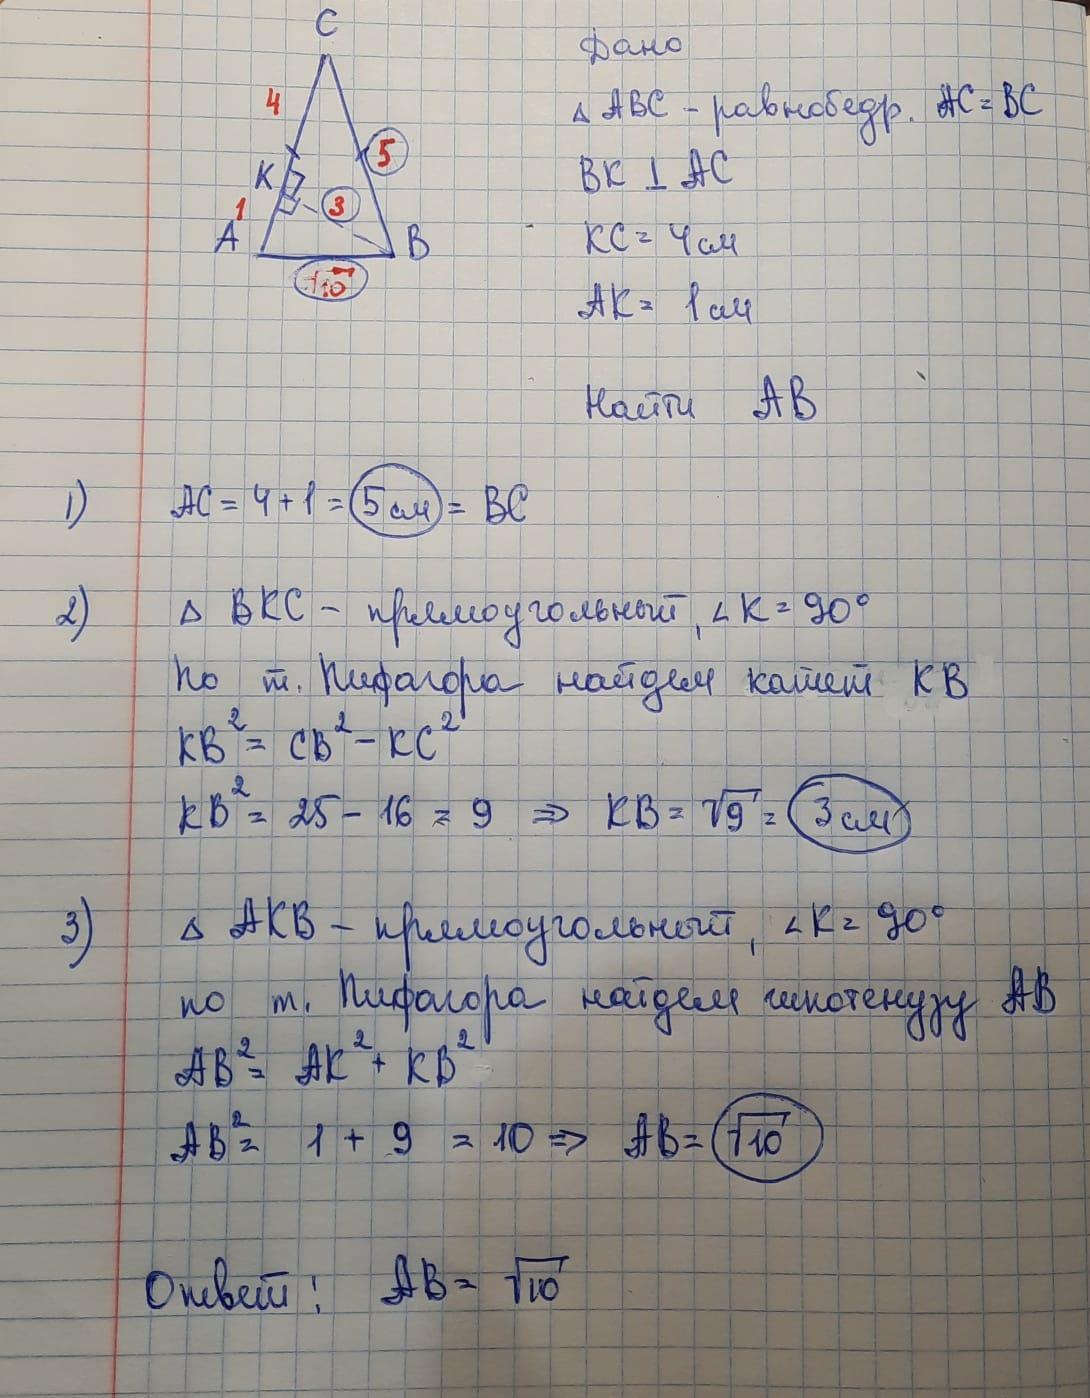 C
Дано
4
△ ABC - равнобедр. AC = BC
5
K
BK ⊥ AC
1
3
A
B
KC = 4 см
√10
AK = 1 см
Найти AB
1) AC = 4 + 1 = 5 см = BC
2) △ BKC - прямоугольный, ∠K = 90°
По т. Пифагора найдем катет KB
KB² = CB² - KC²
KB² = 25 - 16 = 9 ⇒ KB = √9 = 3 см
3) △ AKB - прямоугольный, ∠K = 90°
по т. Пифагора найдем гипотенузу AB
AB² = AK² + KB²
AB² = 1 + 9 = 10 ⇒ AB = √10
Ответ: AB = √10